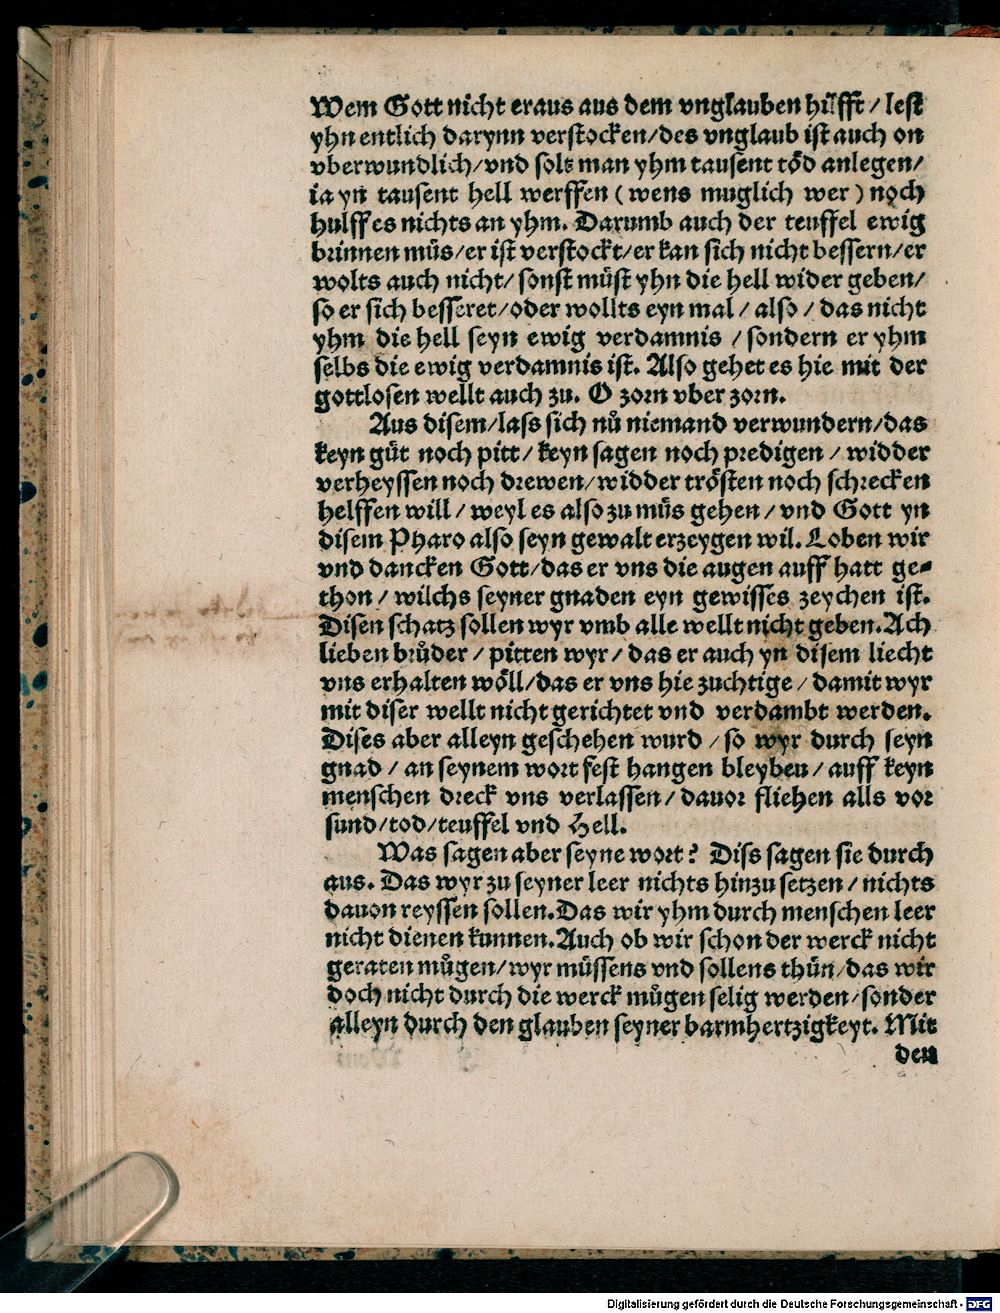 Wem Gott nicht eraus aus dem vnglauben hilfft / lest
yhn entlich darynn verstocken/des vnglaub ist auch on
vberwundlich/vnd solt man yhm tausent töd anlegen/
ia yn tausent hell werffen (wens muglich wer) noch
hulff es nichts an yhm. Darumb auch der teuffel ewig
brinnen müs/er ist verstockt/er kan sich nicht bessern/er
wolts auch nicht/ sonst müst yhn die hell wider geben/
so er sich besseret/oder wollts eyn mal / also / das nicht
yhm die hell seyn ewig verdamnis / sondern er yhm
selbs die ewig verdamnis ist. Also gehet es hie mit der
gottlosen wellt auch zu. O zorn vber zorn.
Aus disem/lass sich nů niemand verwundern/das
keyn gůt noch pitt/ keyn sagen noch predigen / widder
verheyssen noch drewen/widder trösten noch schrecken
helffen will / weyl es also zu můs gehen / vnd Gott yn
disem Pharo also seyn gewalt erzeygen wil. Loben wir
vnd dancken Gott/das er vns die augen auff hatt ge-
thon / wilchs seyner gnaden eyn gewisses zeychen ist.
Disen schatz sollen wyr vmb alle wellt nicht geben. Ach
lieben brůder / pitten wyr / das er auch yn disem liecht
vns erhalten wöll/das er vns hie zuchtige / damit wyr
mit diser wellt nicht gerichtet vnd verdambt werden.
Dises aber alleyn geschehen wurd / so wyr durch seyn
gnad / an seynem wort fest hangen bleyben / auff keyn
menschen dreck vns verlassen / dauor fliehen alls vor
sund/tod/teuffel vnd Hell.
Was sagen aber seyne wort? Diss sagen sie durch
aus. Das wyr zu seyner leer nichts hinzu setzen / nichts
dauon reyssen sollen. Das wir yhm durch menschen leer
nicht dienen kunnen. Auch ob wir schon der werck nicht
geraten můgen/wyr müssens vnd sollens thůn/das wir
doch nicht durch die werck můgen selig werden/sonder
alleyn durch den glauben seyner barmhertzigkeyt. Mit
den
Digitalisierung gefördert durch die Deutsche Forschungsgemeinschaft - DFG